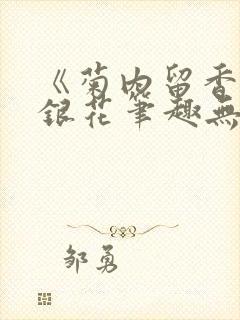 《菊内留香
銀花筆趣無
邹勇